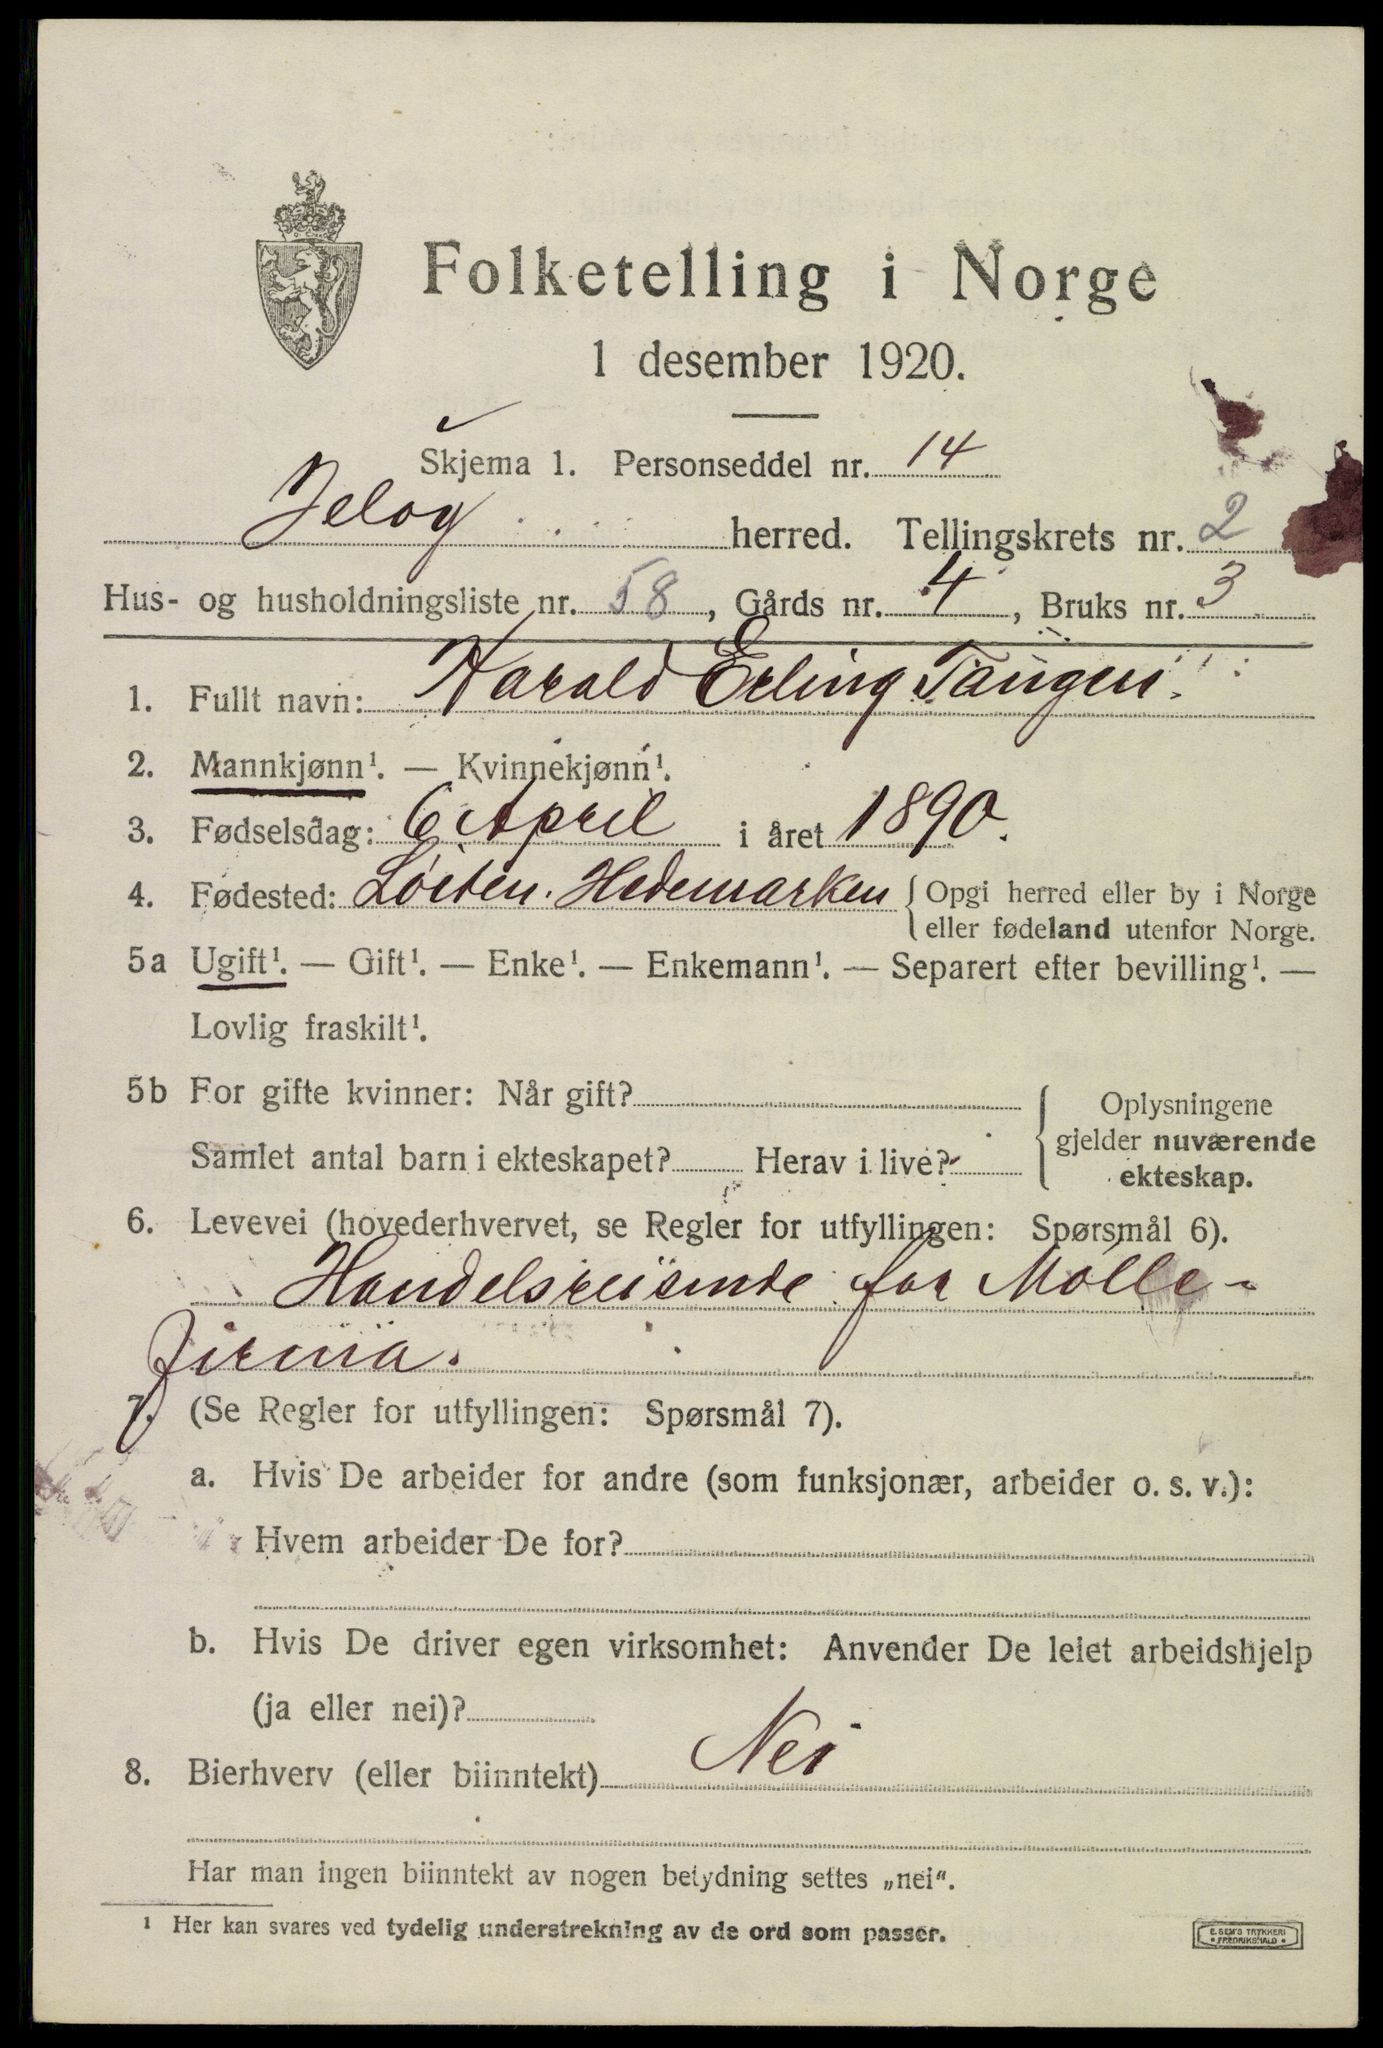 Folketelling i Norge
1 desember 1920.
Skjema 1. Personseddel nr. 14
Jeløy herred. Tellingskrets nr. 2
Hus- og husholdningsliste nr. 58, Gårds nr. 4, Bruks nr. 3
1. Fullt navn: Harald Erling Tangen.
2. Mannkjønn¹. — Kvinnekjønn¹.
3. Fødselsdag: 6 April i året 1890.
4. Fødested: Løiten. Hedemarken { Opgi herred eller by i Norge
eller fødeland utenfor Norge.
5a Ugift¹. — Gift¹. — Enke¹. — Enkemann¹. — Separert efter bevilling¹. —
Lovlig fraskilt¹.
5b For gifte kvinner: Når gift? { Oplysningene
gjelder nuværende
ekteskap.
Samlet antal barn i ekteskapet? Herav i live?
6. Levevei (hovederhvervet, se Regler for utfyllingen: Spørsmål 6).
Handelsreisende for Mølle-
firma.
7. (Se Regler for utfyllingen: Spørsmål 7).
a. Hvis De arbeider for andre (som funksjonær, arbeider o. s. v.):
Hvem arbeider De for?
b. Hvis De driver egen virksomhet: Anvender De leiet arbeidshjelp
(ja eller nei)?
8. Bierhverv (eller biinntekt) Nei
Har man ingen biinntekt av nogen betydning settes „nei“.
¹ Her kan svares ved tydelig understrekning av de ord som passer.
E. SEM'S TRYKKERI
FREDRIKSHALD